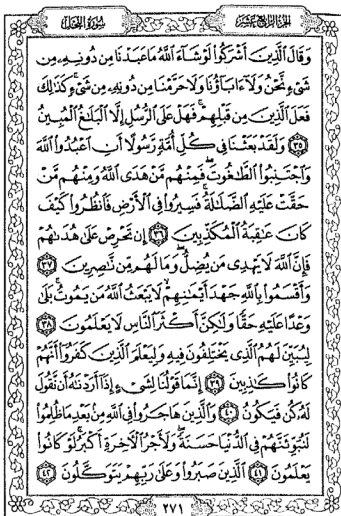 الجزء الرابع عشر
سورة النحل
وَقَالَ ٱلَّذِينَ أَشْرَكُوا۟ لَوْ شَآءَ ٱللَّهُ مَا عَبَدْنَا مِن دُونِهِۦ مِن
شَىْءٍ نَّحْنُ وَلَآ ءَابَآؤُنَا وَلَا حَرَّمْنَا مِن دُونِهِۦ مِن شَىْءٍ ۚ كَذَٰلِكَ
فَعَلَ ٱلَّذِينَ مِن قَبْلِهِمْ ۚ فَهَلْ عَلَى ٱلرُّسُلِ إِلَّا ٱلْبَلَٰغُ ٱلْمُبِينُ
٣٥ وَلَقَدْ بَعَثْنَا فِى كُلِّ أُمَّةٍ رَّسُولًا أَنِ ٱعْبُدُوا۟ ٱللَّهَ
وَٱجْتَنِبُوا۟ ٱلطَّٰغُوتَ ۖ فَمِنْهُم مَّنْ هَدَى ٱللَّهُ وَمِنْهُم مَّنْ
حَقَّتْ عَلَيْهِ ٱلضَّلَٰلَةُ ۚ فَسِيرُوا۟ فِى ٱلْأَرْضِ فَٱنظُرُوا۟ كَيْفَ
كَانَ عَٰقِبَةُ ٱلْمُكَذِّبِينَ ٣٦ إِن تَحْرِصْ عَلَىٰ هُدَىٰهُمْ
فَإِنَّ ٱللَّهَ لَا يَهْدِى مَن يُضِلُّ ۖ وَمَا لَهُم مِّن نَّٰصِرِينَ ٣٧
وَأَقْسَمُوا۟ بِٱللَّهِ جَهْدَ أَيْمَٰنِهِمْ ۙ لَا يَبْعَثُ ٱللَّهُ مَن يَمُوتُ ۚ بَلَىٰ
وَعْدًا عَلَيْهِ حَقًّا وَلَٰكِنَّ أَكْثَرَ ٱلنَّاسِ لَا يَعْلَمُونَ ٣٨
لِيُبَيِّنَ لَهُمُ ٱلَّذِى يَخْتَلِفُونَ فِيهِ وَلِيَعْلَمَ ٱلَّذِينَ كَفَرُوٓا۟ أَنَّهُمْ
كَانُوا۟ كَٰذِبِينَ ٣٩ إِنَّمَا قَوْلُنَا لِشَىْءٍ إِذَآ أَرَدْنَٰهُ أَن نَّقُولَ
لَهُۥ كُن فَيَكُونُ ٤٠ وَٱلَّذِينَ هَاجَرُوا۟ فِى ٱللَّهِ مِنۢ بَعْدِ مَا ظُلِمُوا۟
لَنُبَوِّئَنَّهُمْ فِى ٱلدُّنْيَا حَسَنَةً ۖ وَلَأَجْرُ ٱلْأَخِرَةِ أَكْبَرُ ۚ لَوْ كَانُوا۟
يَعْلَمُونَ ٤١ ٱلَّذِينَ صَبَرُوا۟ وَعَلَىٰ رَبِّهِمْ يَتَوَكَّلُونَ ٤٢
٢٧١